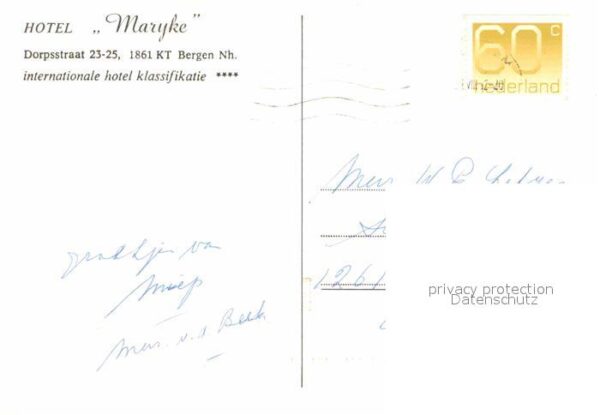 HOTEL „Maryke”
Dorpsstraat 23-25, 1861 KT Bergen Nh.
internationale hotel klassifikatie ****
60 c
nederland
Mevr W
1261
privacy protection
Datenschutz
van
Miep
Mevr. v. d. Beek